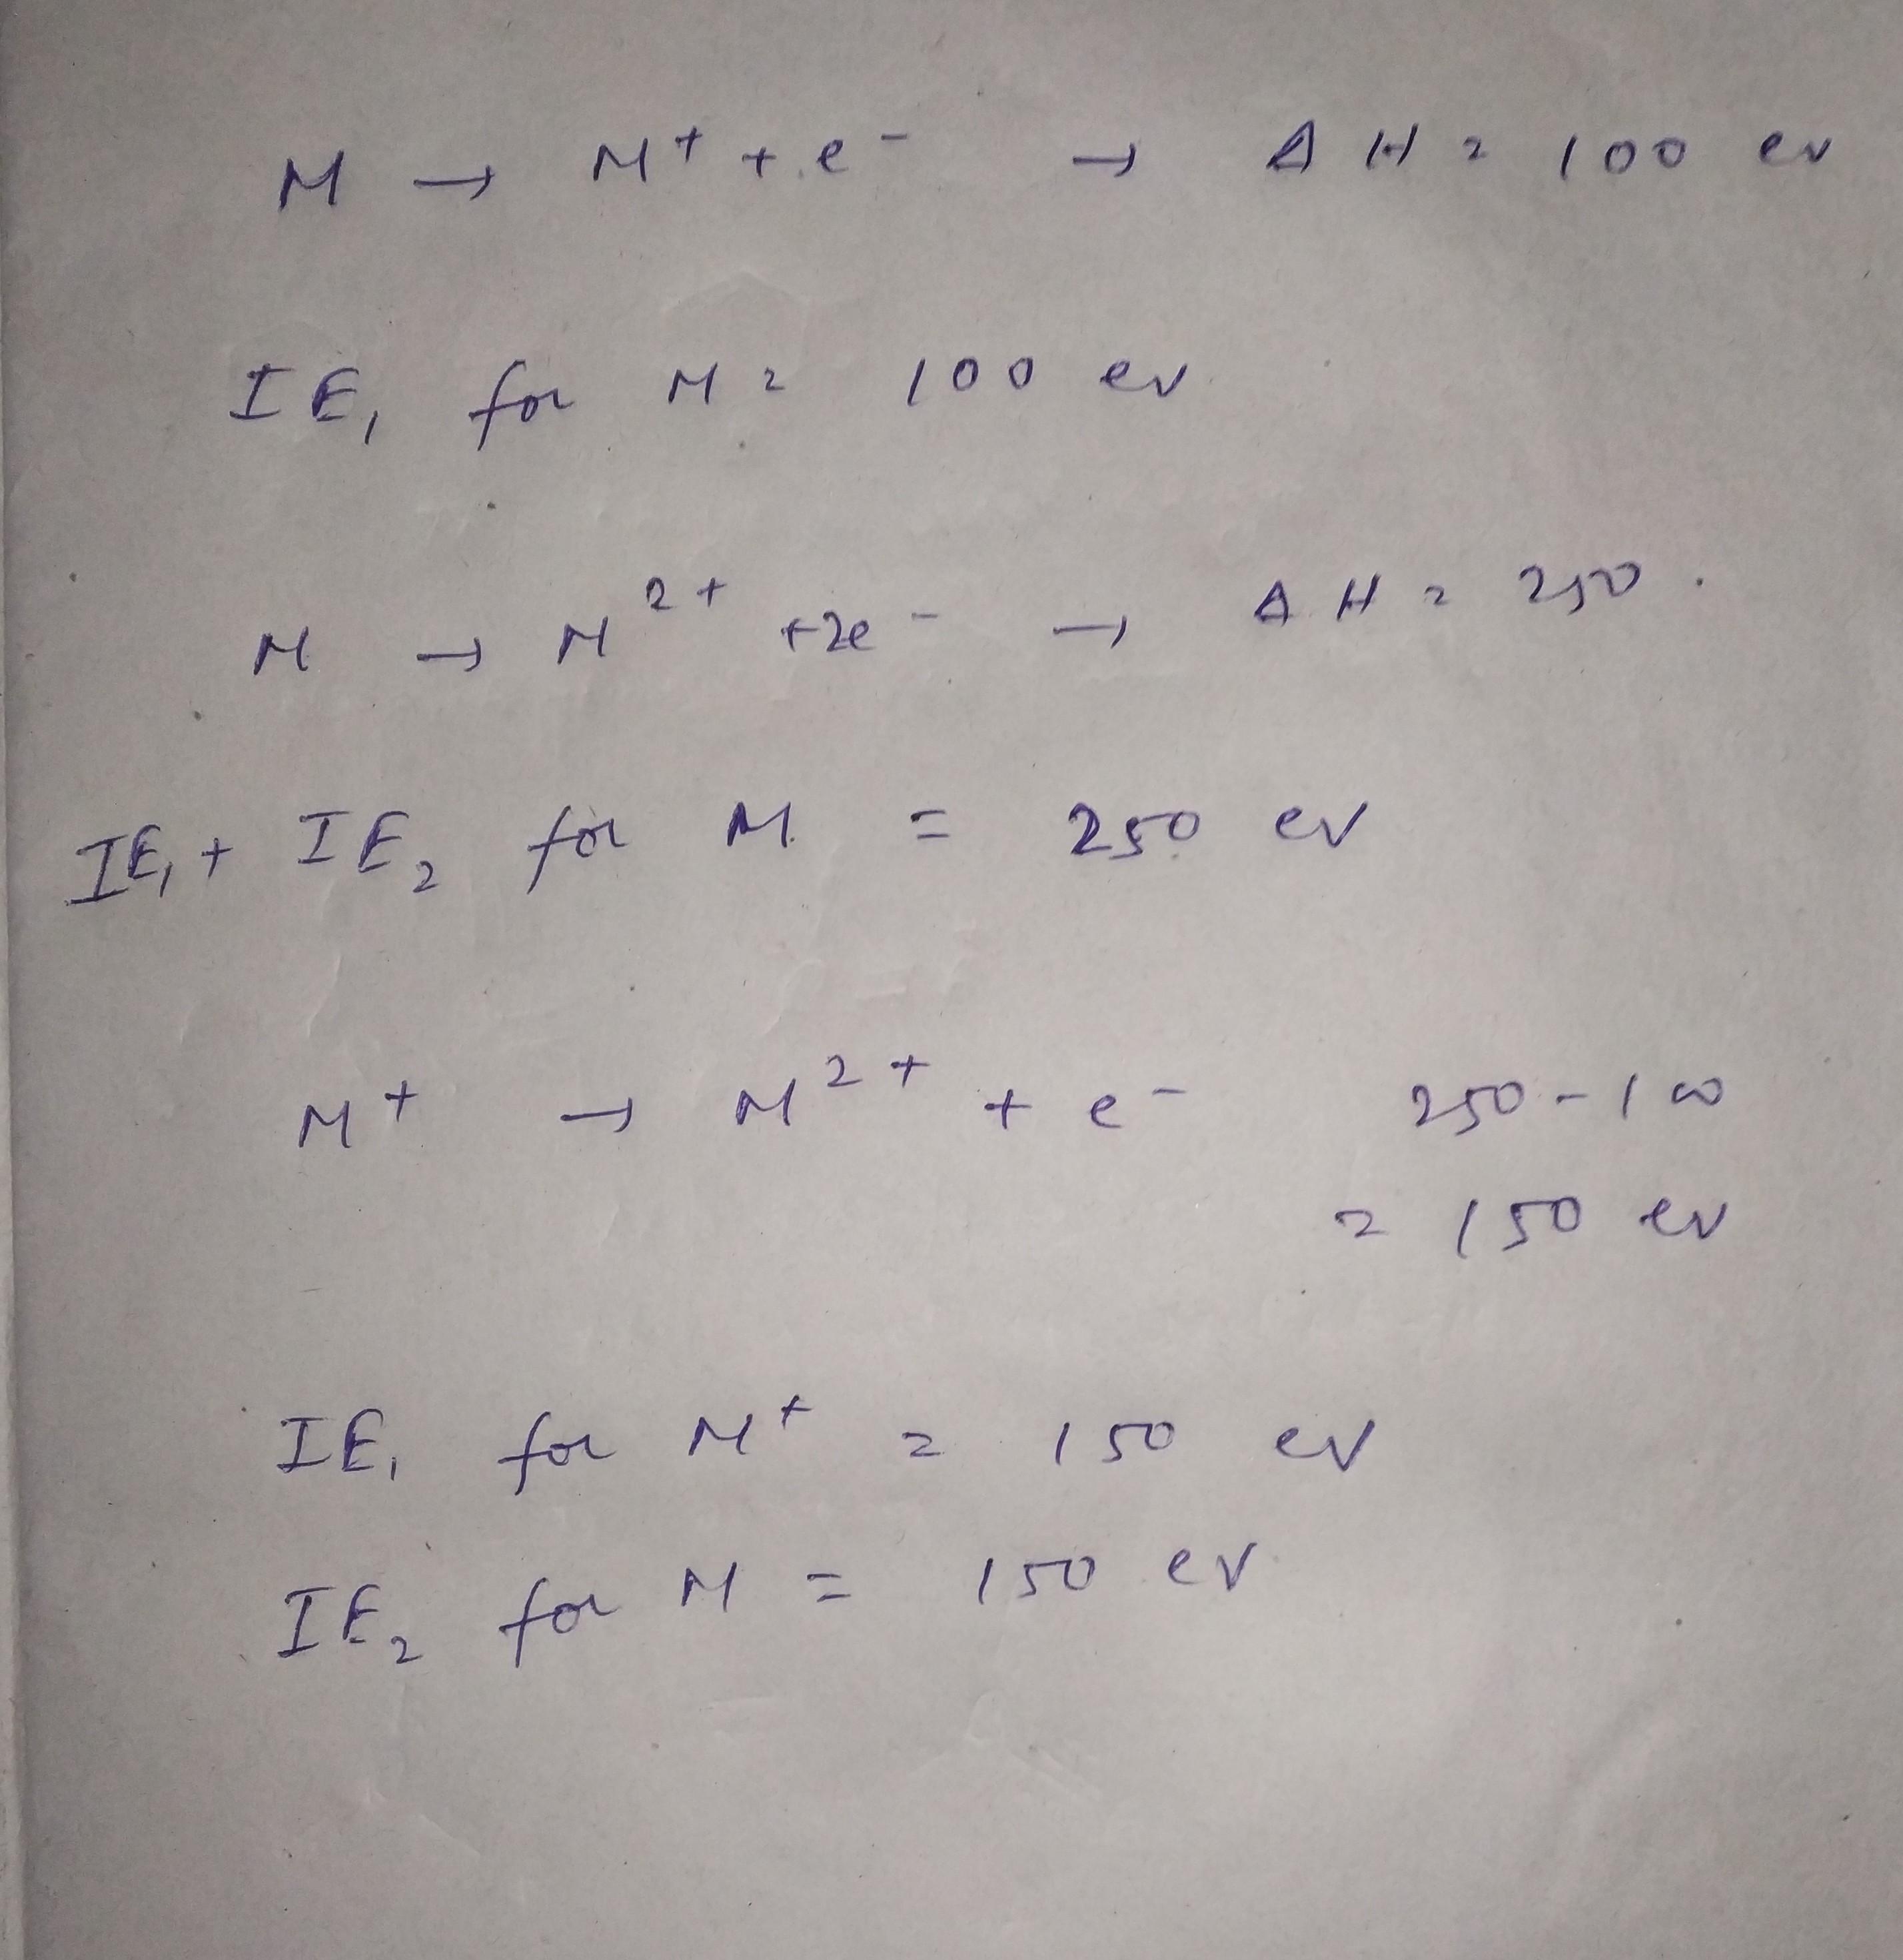 M → M⁺ + e⁻ → ΔH = 100 ev
IE₁ for M = 100 ev
M → M²⁺ + 2e⁻ → ΔH = 250.
IE₁ + IE₂ for M = 250 ev
M⁺ → M²⁺ + e⁻ 250 - 100
= 150 ev
IE₁ for M⁺ = 150 ev
IE₂ for M = 150 ev